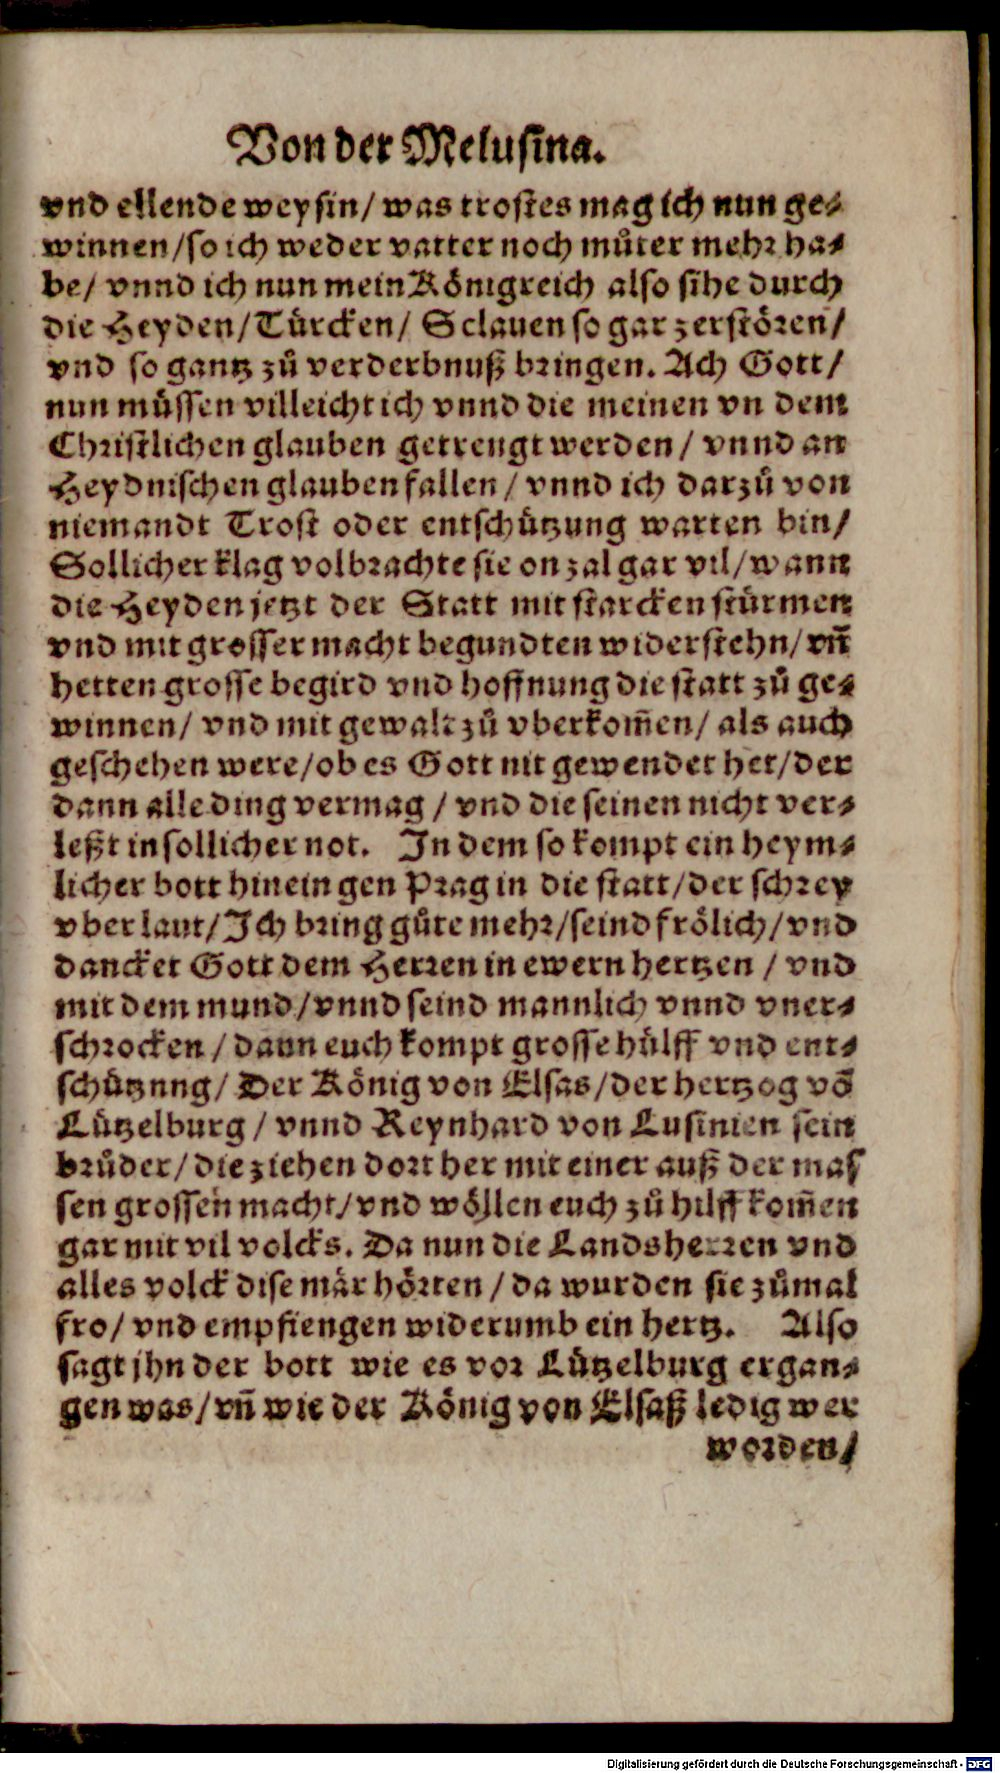 Von der Melusina.
vnd ellende weysin/ was trostes mag ich nun ge⸗
winnen/so ich weder vatter noch můter mehr ha⸗
be/ vnnd ich nun mein Königreich also sihe durch
die Heyden/Türcken/ Sclauen so gar zerstören/
vnd so gantz zů verderbnuß bringen. Ach Gott/
nun müssen villeicht ich vnnd die meinen vn dem
Christlichen glauben getrengt werden/ vnnd an
Heydnischen glauben fallen/ vnnd ich darzů von
niemandt Trost oder entschützung warten bin/
Sollicher klag volbrachte sie on zal gar vil/wann
die Heyden jetzt der Statt mit starcken stürmen
vnd mit grosser macht begundten widerstehn/ vñ
hetten grosse begird vnd hoffnung die statt zů ge⸗
winnen/ vnd mit gewalt zů vberkom̃en/ als auch
geschehen were/ob es Gott nit gewendet het/der
dann alle ding vermag/ vnd die seinen nicht ver⸗
leßt in sollicher not. In dem so kompt ein heym⸗
licher bott hinein gen Prag in die statt/der schrey
vber laut/Ich bring gůte mehr/seind frölich/vnd
dancket Gott dem Herren in ewern hertzen/ vnd
mit dem mund/vnnd seind mannlich vnnd vner⸗
schrocken/dann euch kompt grosse hülff vnd ent⸗
schützung/ Der König von Elsas/der hertzog võ
Lützelburg/ vnnd Reynhard von Lusinien sein
brůder/die ziehen dort her mit einer auß der mas
sen grossen macht/vnd wöllen euch zů hilff kom̃en
gar mit vil volcks. Da nun die Landsherren vnd
alles volck dise mär hörten/da wurden sie zůmal
fro/ vnd empfiengen widerumb ein hertz. Also
sagt jhn der bott wie es vor Lützelburg ergan⸗
gen was/vñ wie der König von Elsaß ledig wer
worden/
Digitalisierung gefördert durch die Deutsche Forschungsgemeinschaft - DFG